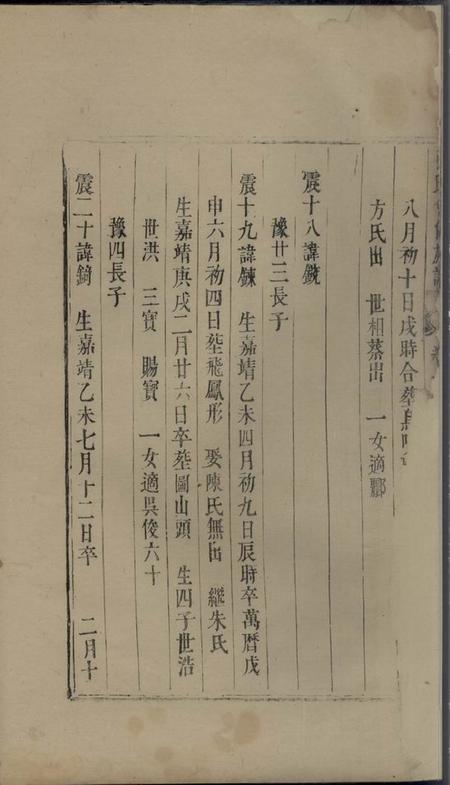 八月初十日戌時合塟
方氏出　世相蔡出　一女適酈
震十八諱鏡
豫廿三長子
震十九諱鍊　生嘉靖乙未四月初九日辰時卒萬曆戊
申六月初四日塟飛鳳形　娶陳氏無出　繼朱氏
生嘉靖庚戌二月廿六日卒塟圖山頭　生四子世浩
世洪　三寳　賜寳　一女適吳俊六十
豫四長子
震二十諱錡　生嘉靖乙未七月十二日卒　二月十